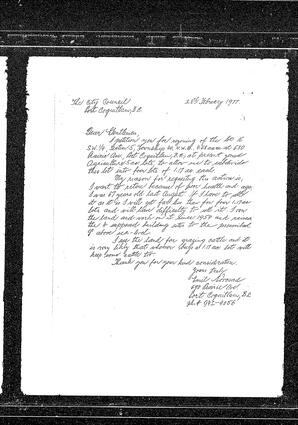 The City Council 28th February 1977
Port Coquitlam, B.C.
Dear Gentlemen,
I petition you for rezoning of the lot 10
S.W. 1/4, Section 5, Township 40,
Prairie Ave, Port Coquitlam, B.C., at present zoned
Agricultural 5 ac lots, to allow me to subdivide
this lot into four lots of 1.17 ac each.
My reason for requesting this action is,
I want to retire because of poor health and age.
I was 67 years old last August. If I have to sell
it as it is I will get far less than for four 1.17 ac
lots and will have difficulty to sell it. I own
the land and work on it since 1950 and
the 4 supposed building sites to the
I use the land for grazing cattle and it
is very likely that whoever buys of 1.17 ac will
keep some cattle too.
Thank you for your kind consideration.
Yours truly
Prairie Ave
Port Coquitlam, B.C.